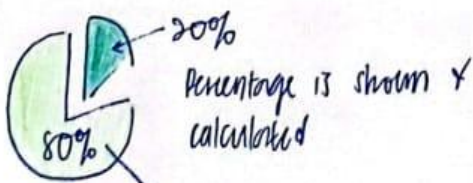 20%
Percentage is shown &
calculated
80%